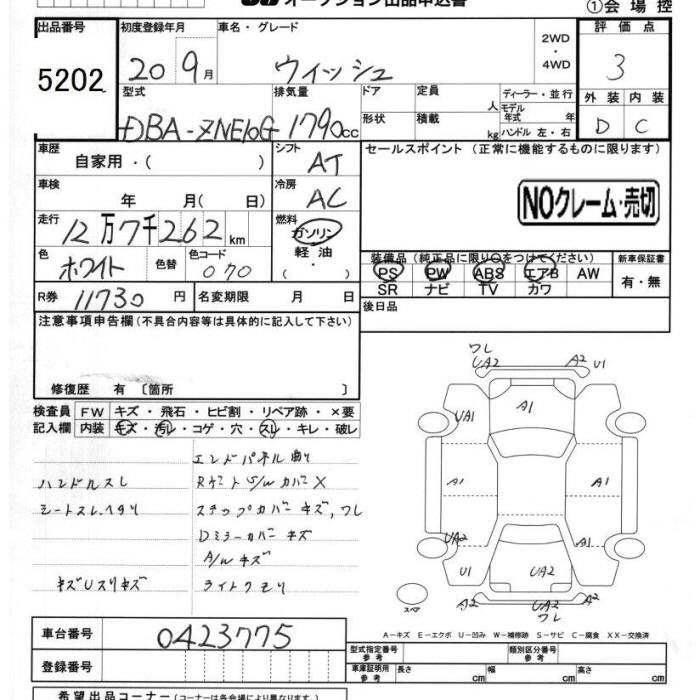 オークション出品申込書
①会場控
出品番号 5202
初度登録年月 20 9月
車名・グレード ウィッシュ
2WD・4WD
評価点 3
型式 DBA-ZNE10G
排気量 1790cc
ドア 形状
定員 人
積載 kg
ディーラー・並行
モデル年式 年
ハンドル 左・右
外装 D
内装 C
車歴 自家用・( )
シフト AT
セールスポイント (正常に機能するものに限ります)
車検 年 月( 日)
冷房 AC
NOクレーム・売切
走行 12万7千262km
燃料 ガソリン 軽油 ( ・ )
色 ホワイト
色替
色コード 070
装備品 (純正品に限り○をつけてください)
PS PW ABS エアB AW
SR ナビ TV カワ
新車保証書 有・無
R券 11730円
名変期限 月 日
後日品
注意事項申告欄 (不具合内容等は具体的に記入して下さい)
修復歴 有 〔箇所 〕
検査員記入欄
FW キズ・飛石・ヒビ割・リペア跡・×要
内装 キズ・汚レ・コゲ・穴・スレ・キレ・破レ
エンドパネル曲り
ハンドルスレ
シートスレ、ヘタリ
ステップカバーキズ、ワレ
Dミラーカバーキズ
A/Wキズ
キズUスリキズ
ライトクモリ
ワレ
UA2 A2 U1
A1
UA1
A1 A1
UA2
U1 UA2
A2 UA2 A2
ワレ
スペア
A-キズ E-エクボ U-凹み W-補修跡 S-サビ C-腐食 XX-交換済
車台番号 0423775
登録番号
型式指定番号 参考
類別区分番号 参考
車庫証明用 参考 長さ cm 幅 cm 高さ cm
希望出品コーナー (コーナーは各会場により異なります。)